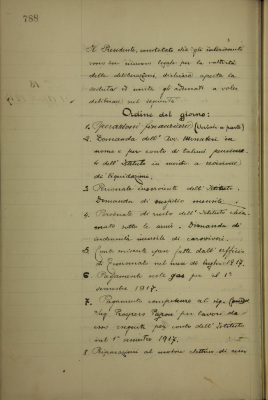 788
Il Presidente, constatato che gl'intervenuti
sono in numero legale per la validità
delle deliberazioni, dichiara aperta la
seduta ed invita gli adunati a voler
deliberare sul seguente
Ordine del giorno:
1. Operazioni finanziarie (Verbale a parte)
2. Domanda dell'Avv. in
nome e per conto di taluni pensiona-
ti dell'Istituto in merito a revisione
di liquidazione.
3. Personale dell'Istituto.
Domanda di sussidio
4. Personale di ruolo dell'Istituto chia-
mato sotto le armi. Domanda di
indennità mensile di caroviveri.
5. spese fatte dall'ufficio
di Economato nel mese di luglio 1917.
6. Pagamento note gas pel 1°
semestre 1917.
7. Pagamento competenze al sig.
Ing. Prospero per lavori da
esso eseguiti per conto dell'Istituto
nel 1° semestre 1917.
8. Riparazioni al motore elettrico di